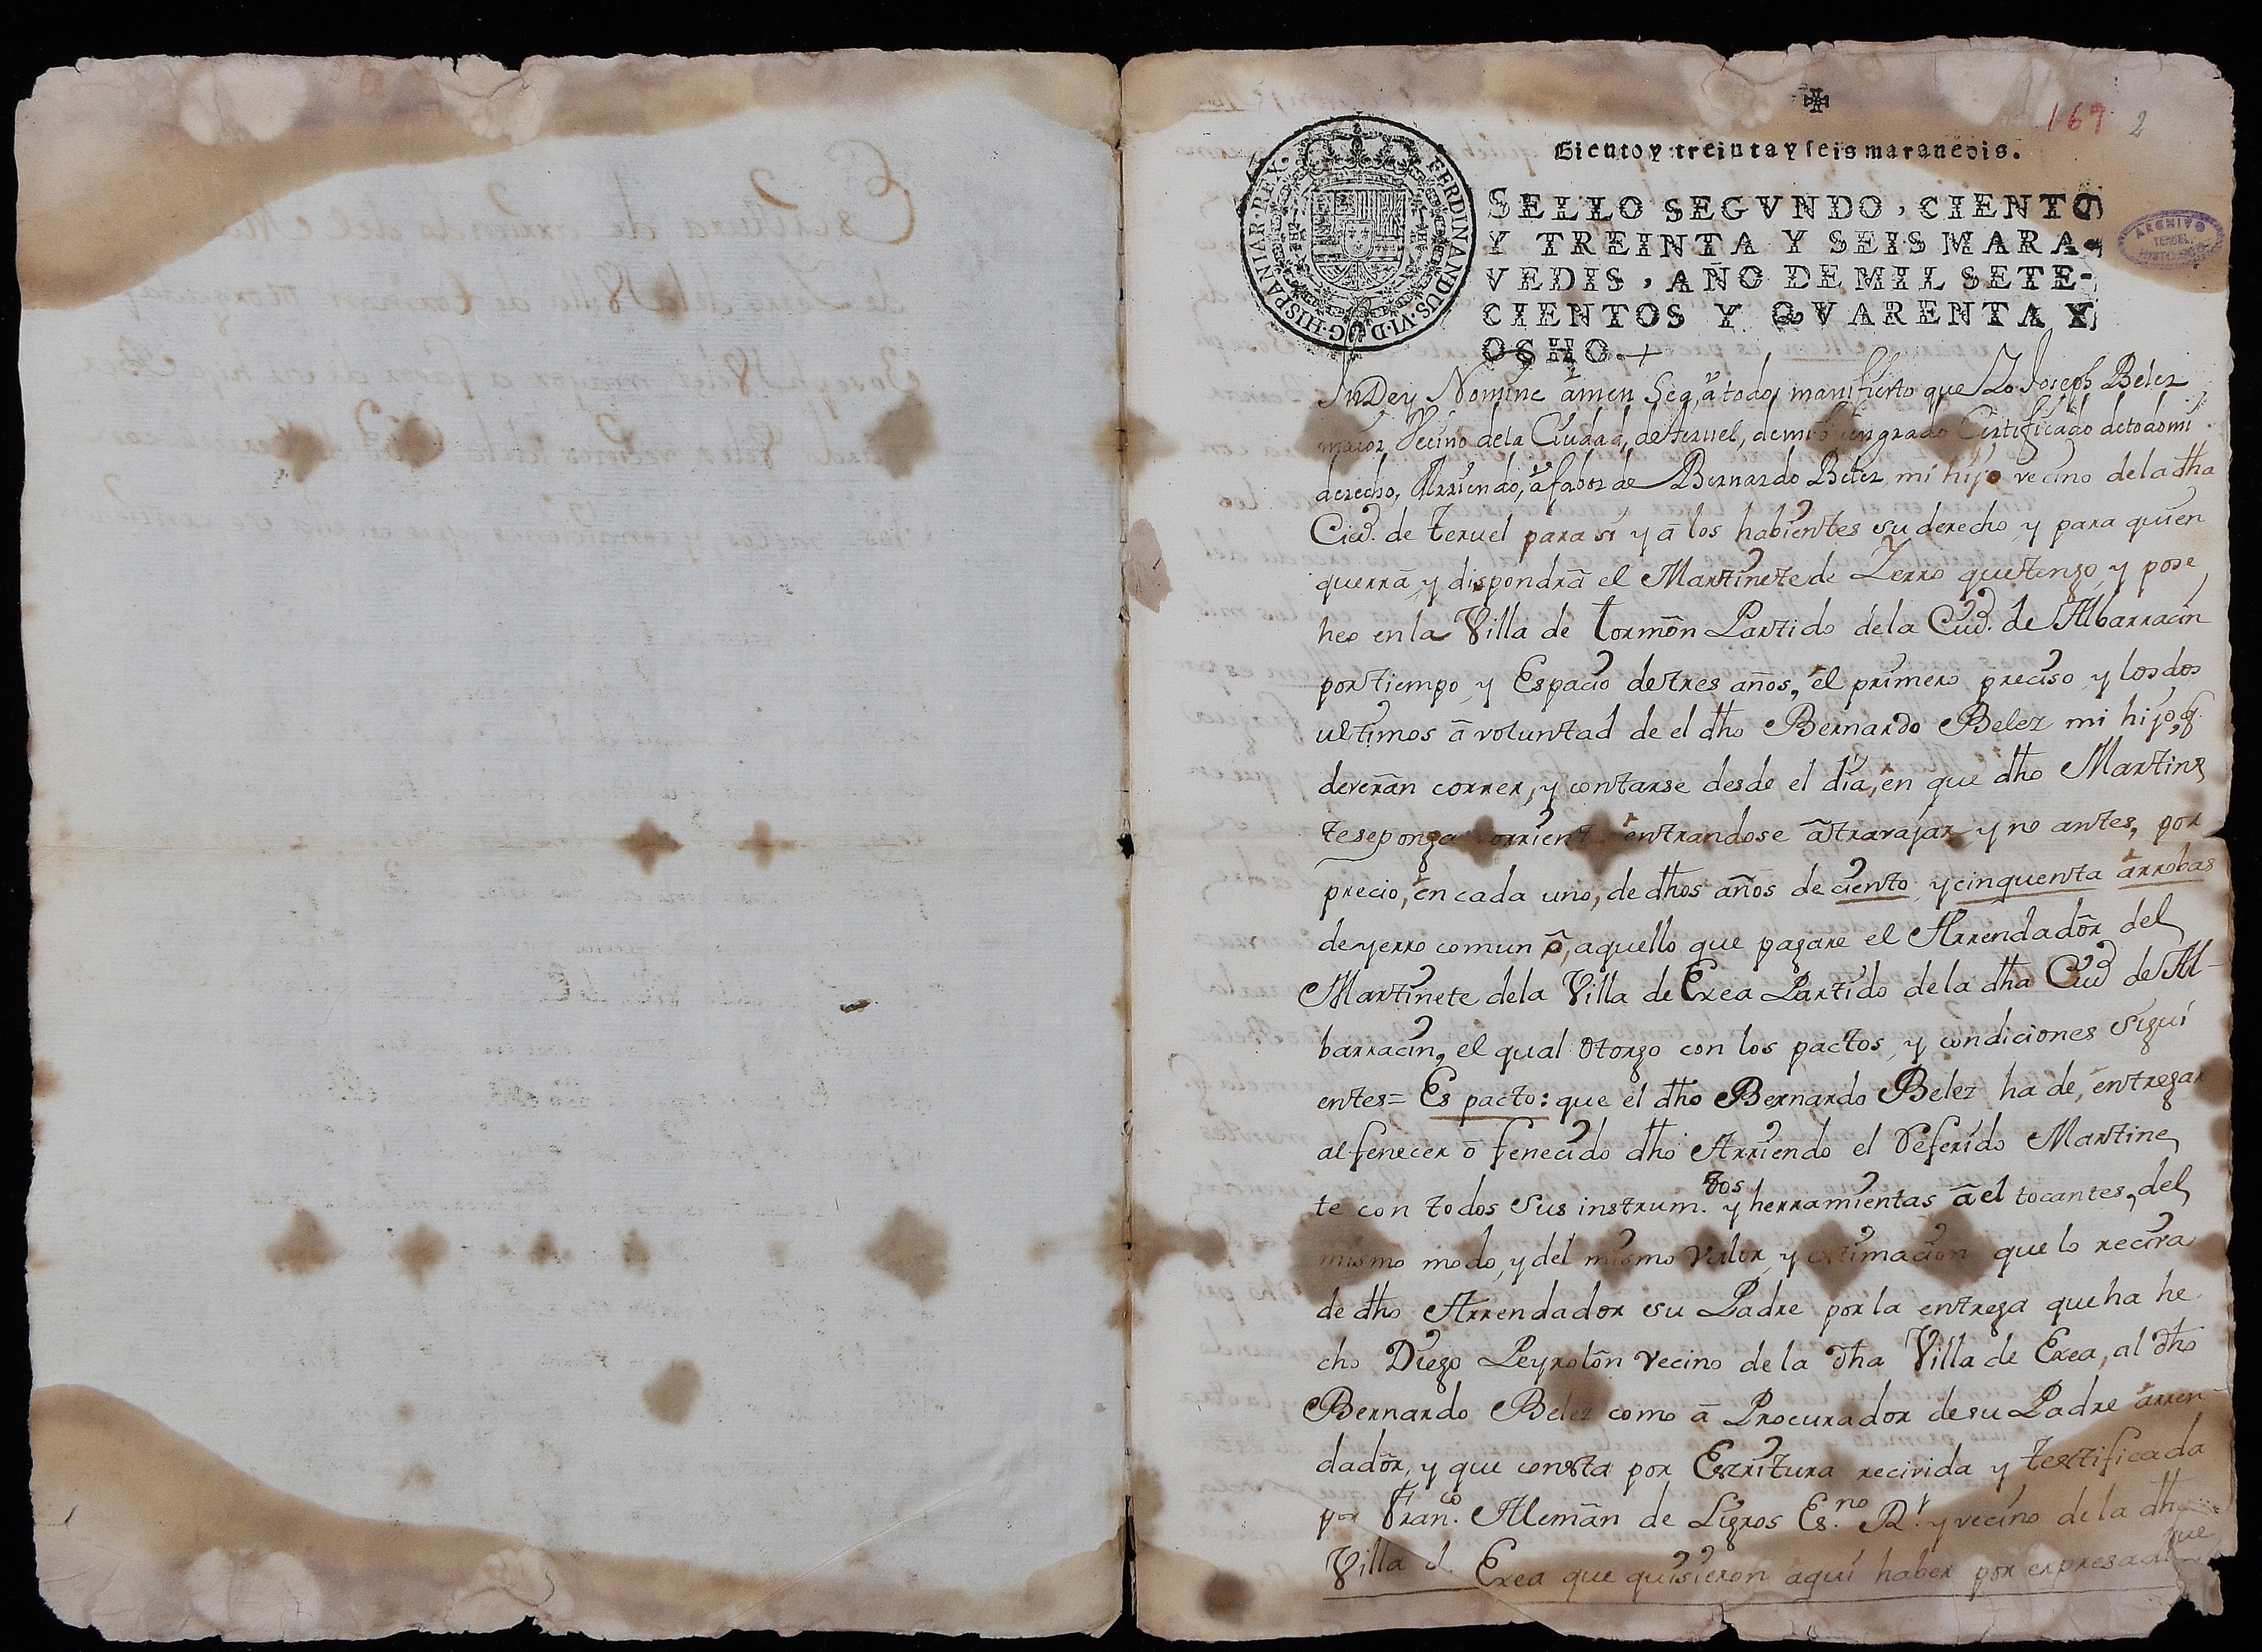 169 2
Ciento y treinta y seis maravedis.
FERDINANDUS·VI·D·G·HISPANIAR·REX·
SELLO SEGVNDO, CIENTO
Y TREINTA Y SEIS MARA-
VEDIS, AÑO DE MIL SETE-
CIENTOS Y QVARENTA Y
OCHO.
ARCHIVO
TERUEL
In Dey Nomine amen Sea, a todos manifiesto que Yo Joseph Belez
maior Vecino dela Ciudad, de teruel, demi buen grado Certificado detodo mi
derecho, Arriendo, a fabor de Bernardo Belez mi hijo vecino dela dha
Ciud. de teruel para si y a los habientes su derecho y para quien
querrà y dispondrà el Martinete de Yerro que tengo y pose
heo en la Villa de tormòn Partido dela Ciud. de Albarracin
por tiempo y Espacio de tres años, el primero preciso y los dos
ultimos à voluntad de el dho Bernardo Belez mi hijo, q.
deveràn correr, y contarse desde el dia, en que dho Martine
te se ponga corriente entrandose à travajar y no antes, por
precio, en cada uno, de dhos años de ciento y cinquenta arrobas
de yerro comun ò, aquello que pagare el Arrendadòr del
Martinete dela Villa de Exea Partido dela dha Ciud de Al-
barracin, el qual otorgo con los pactos, y condiciones Sigui
entes= Es pacto: que el dho Bernardo Belez ha de, entregar
al fenecer ò fenecido dho Arriendo el Referido Martine
te con todos sus instrum.tos y herramientas à el tocantes, del
mismo modo, y del mismo valor y estimacion que lo recivra
de dho Arrendador su Padre por la entrega que ha he
cho Diego Peyrolòn Vecino de la dha Villa de Exea, al dho
Bernardo Belez como à Procurador de su Padre arren-
dadòr, y que consta por Escritura recivida y testificada
por Fran.co Alemàn de Ligros Es.no R.l y vecino de la dha
Villa d Exea que quisieron aqui haber por expresada
que